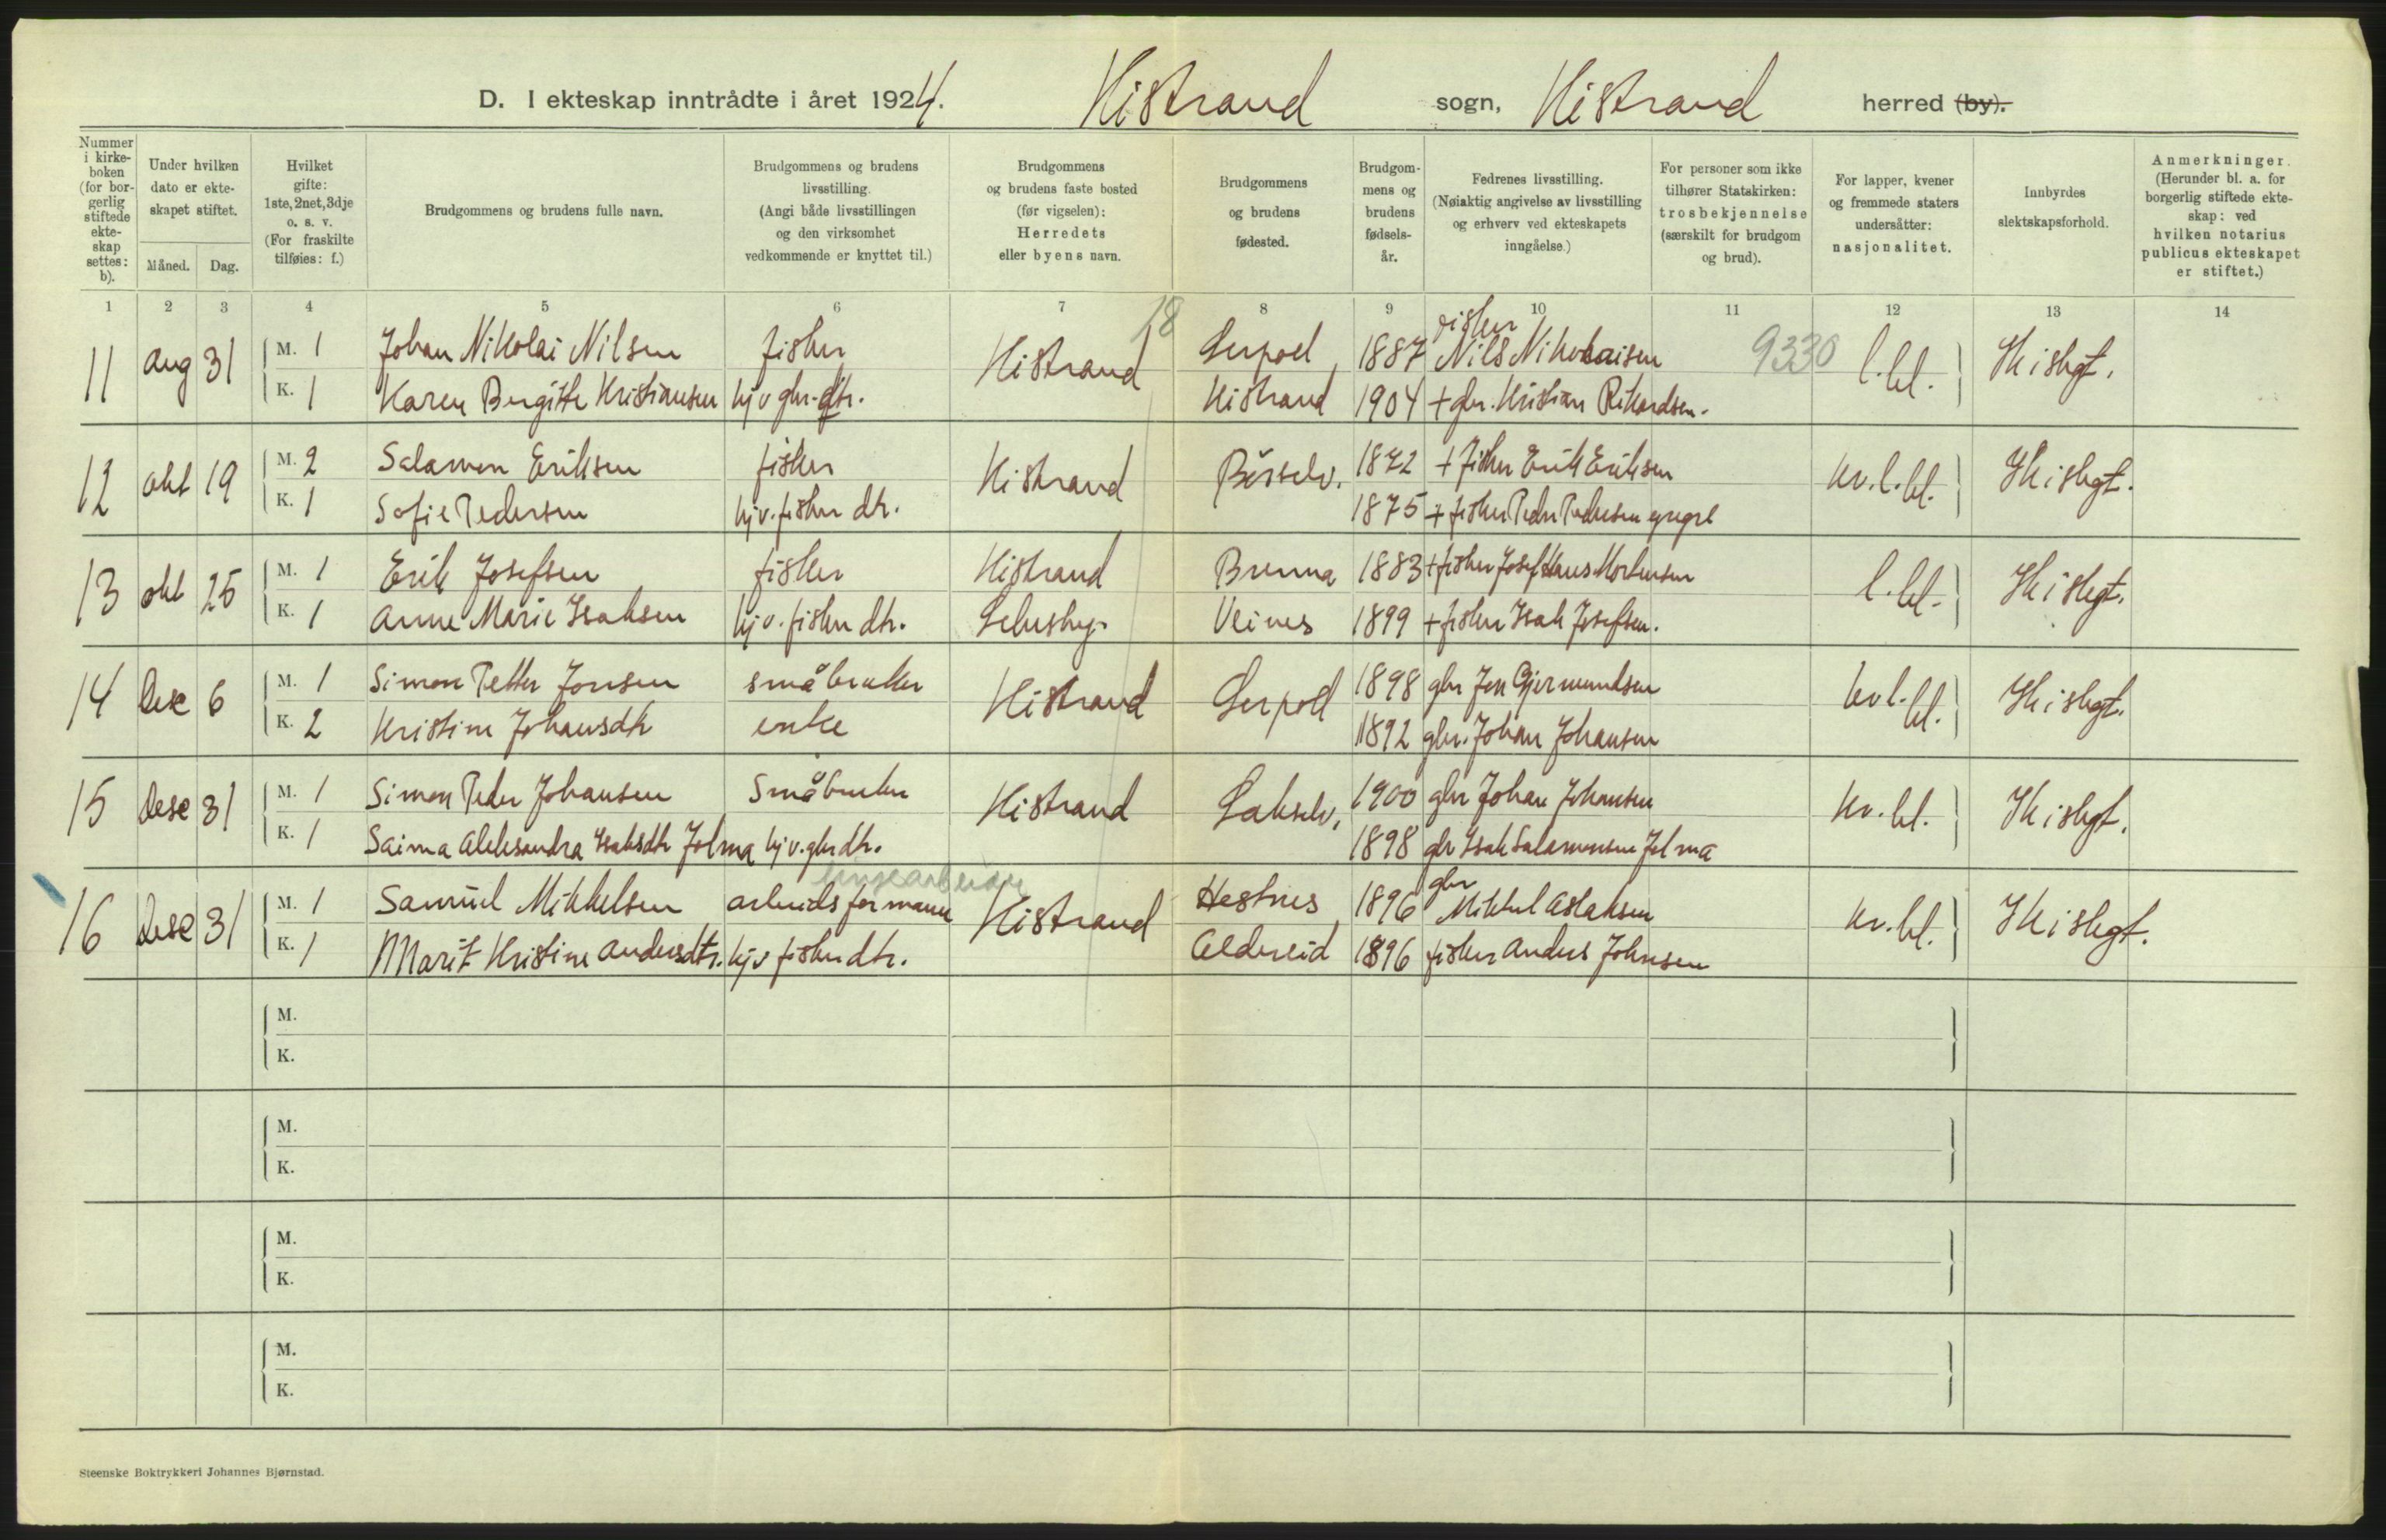 D. I ekteskap inntrådte i året 1924. Kistrand sogn, Kistrand herred (by).
Nummer i kirkeboken (for borgerlig stiftede ekteskap settes: b).
Under hvilken dato er ekteskapet stiftet.
Måned. Dag.
Hvilket gifte: 1ste, 2net, 3dje o. s. v. (For fraskilte tilføies: f.)
Brudgommens og brudens fulle navn.
Brudgommens og brudens livsstilling. (Angi både livsstillingen og den virksomhet vedkommende er knyttet til.)
Brudgommens og brudens faste bosted (før vigselen): Herredets eller byens navn.
Brudgommens og brudens fødested.
Brudgommens og brudens fødselsår.
Fedrenes livsstilling. (Nøiaktig angivelse av livsstilling og erhverv ved ekteskapets inngåelse.)
For personer som ikke tilhører Statskirken: trosbekjennelse (særskilt for brudgom og brud).
For lapper, kvener og fremmede staters undersåtter: nasjonalitet.
Innbyrdes slektskapsforhold.
Anmerkninger. (Herunder bl. a. for borgerlig stiftede ekteskap: ved hvilken notarius publicus ekteskapet er stiftet.)
1 2 3 4 5 6 7 8 9 10 11 12 13 14
18 9330
11 Aug 31 M. 1 Johan Nikolai Nilsen fisker Kistrand 1887 fisker Nils Nikolaisen l.bl. Ik i slegt.
K. 1 Karen Birgitte Kristiansen hjv gbr.dtr. Kistrand 1904 + gbr. Kristian Rikardsen.
12 okt 19 M. 2 Salamon Eriksen fisker Kistrand Børselv. 1872 + fisker Erik Eriksen kv.l.bl. Ik i slegt.
K. 1 Sofie Pedersen hjv. fisker dtr. 1875 + fisker Peder Pedersen
13 okt 25 M. 1 Erik Josefsen fisker Kistrand Brenna 1883 + fisker Josef Hans Mortensen l.bl. Ik i slegt.
K. 1 Anne Marie Isaksen hjv. fisker dtr. Lebesby. Veines 1899 + fisker Isak Josefsen.
14 Dese 6 M. 1 Simon Petter Jonsen småbruker Kistrand 1898 gbr Jon Gjermundsen kv l. bl. Ik i slegt.
K. 2 Kristine Johansdtr enke 1892 gbr. Johan Johansen
15 Dese 31 M. 1 Simon Peder Johansen Småbruker Kistrand Lakselv. 1900 gbr Johan Johansen kv. bl. Ik i slegt.
K. 1 Saima Aleksandra Isaksdtr Jolma hjv. gbr dtr. 1898 gbr Isak Salamonsen Jolma
16 Dese 31 M. 1 Samuel Mikkelsen arbeidsformann Kistrand Hestnes 1896 gbr Mikkel Aslaksen kv. bl. Ik i slegt.
K. 1 Marit Kristine Andersdtr. hjv fisker dtr. Aldereid 1896 fisker Anders Johnsen
M.
K.
M.
K.
M.
K.
M.
K.
Steenske Boktrykkeri Johannes Bjørnstad.